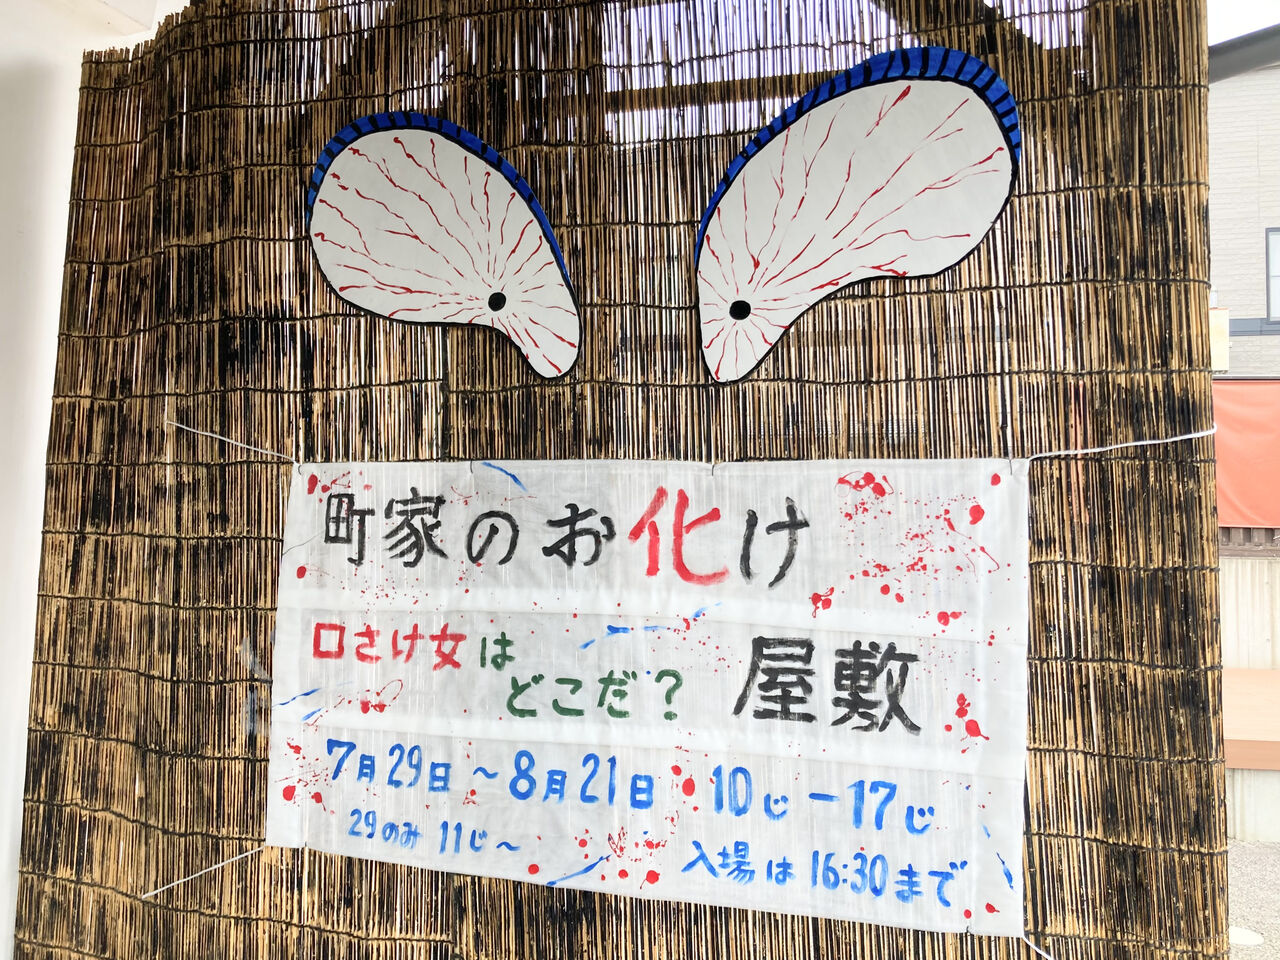 町家のお化け
屋敷
口さけ女は
どこだ？
7月29日～8月21日 10じー17じ
29のみ 11じ～ 入場は16:30まで